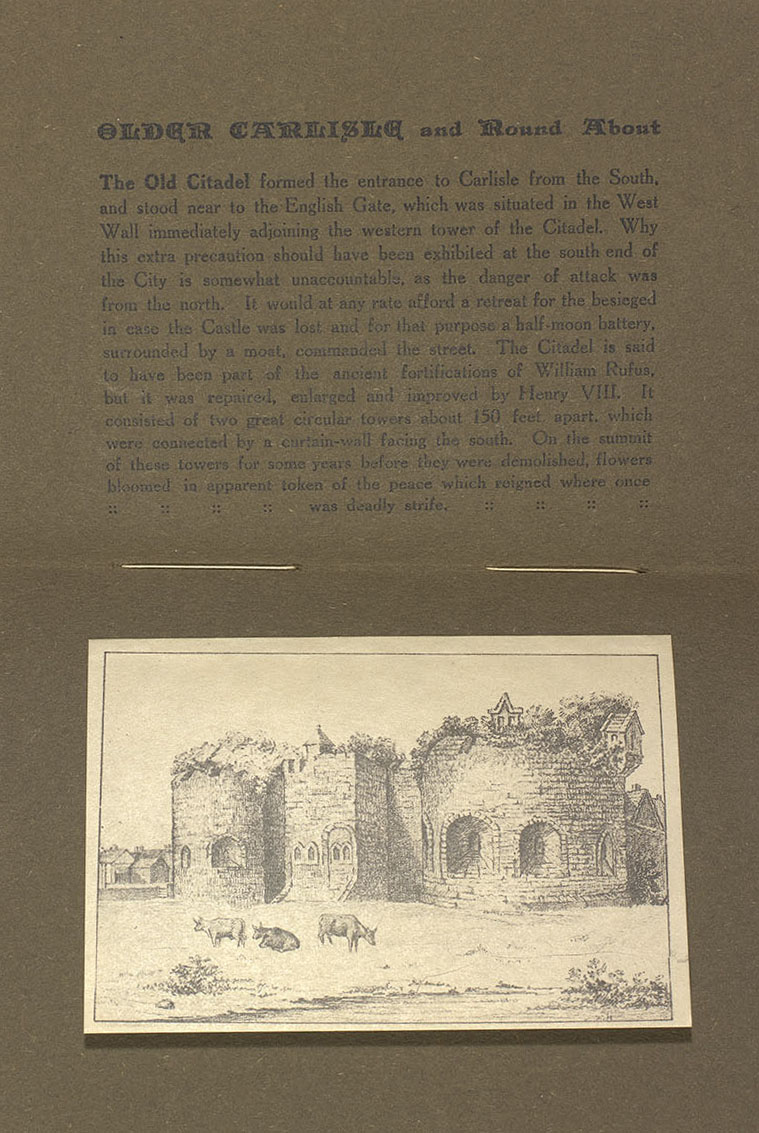 OLDER CARLISLE and Round About
The Old Citadel formed the entrance to Carlisle from the South,
and stood near to the English Gate, which was situated in the West
Wall immediately adjoining the western tower of the Citadel. Why
this extra precaution should have been exhibited at the south end of
the City is somewhat unaccountable, as the danger of attack was
from the north. It would at any rate afford a retreat for the besieged
in case the Castle was lost and for that purpose a half-moon battery,
surrounded by a moat, commanded the street. The Citadel is said
to have been part of the ancient fortifications of William Rufus,
but it was repaired, enlarged and improved by Henry VIII. It
consisted of two great circular towers about 150 feet apart, which
were connected by a curtain-wall facing the south. On the summit
of these towers for some years before they were demolished, flowers
bloomed in apparent token of the peace which reigned where once
:: :: :: :: was deadly strife. :: :: :: ::